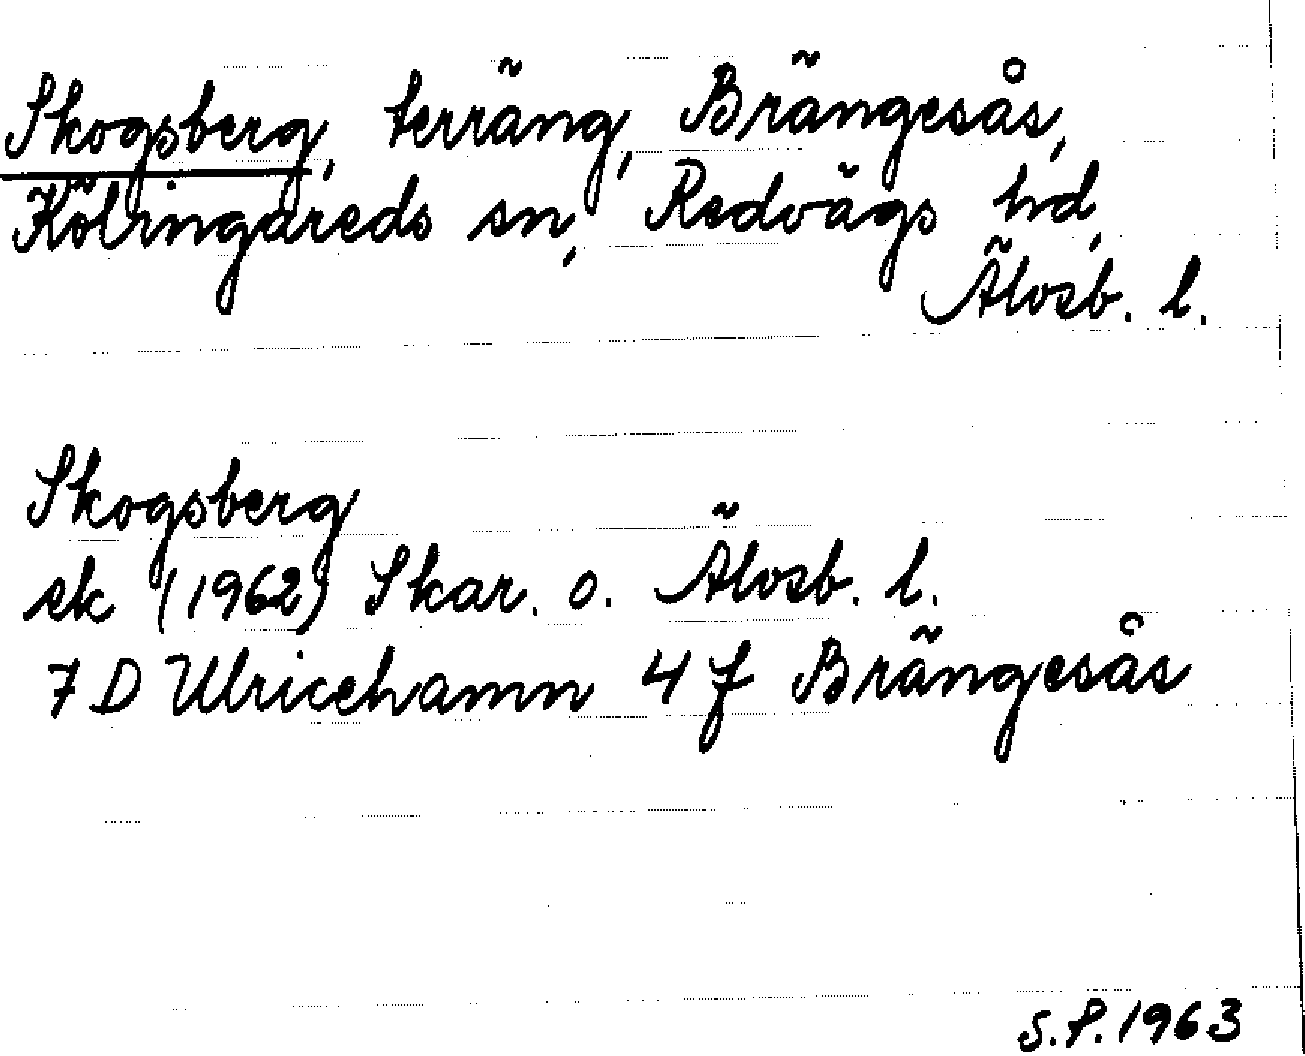 Skogsberg, terräng, Brängesås,
Kölingareds sn, Redvägs hd,
Älvsb. l.
Skogsberg
ek (1962) Skar. o. Älvsb. l.
7 D Ulricehamn 4 f Brängesås
S.P. 1963